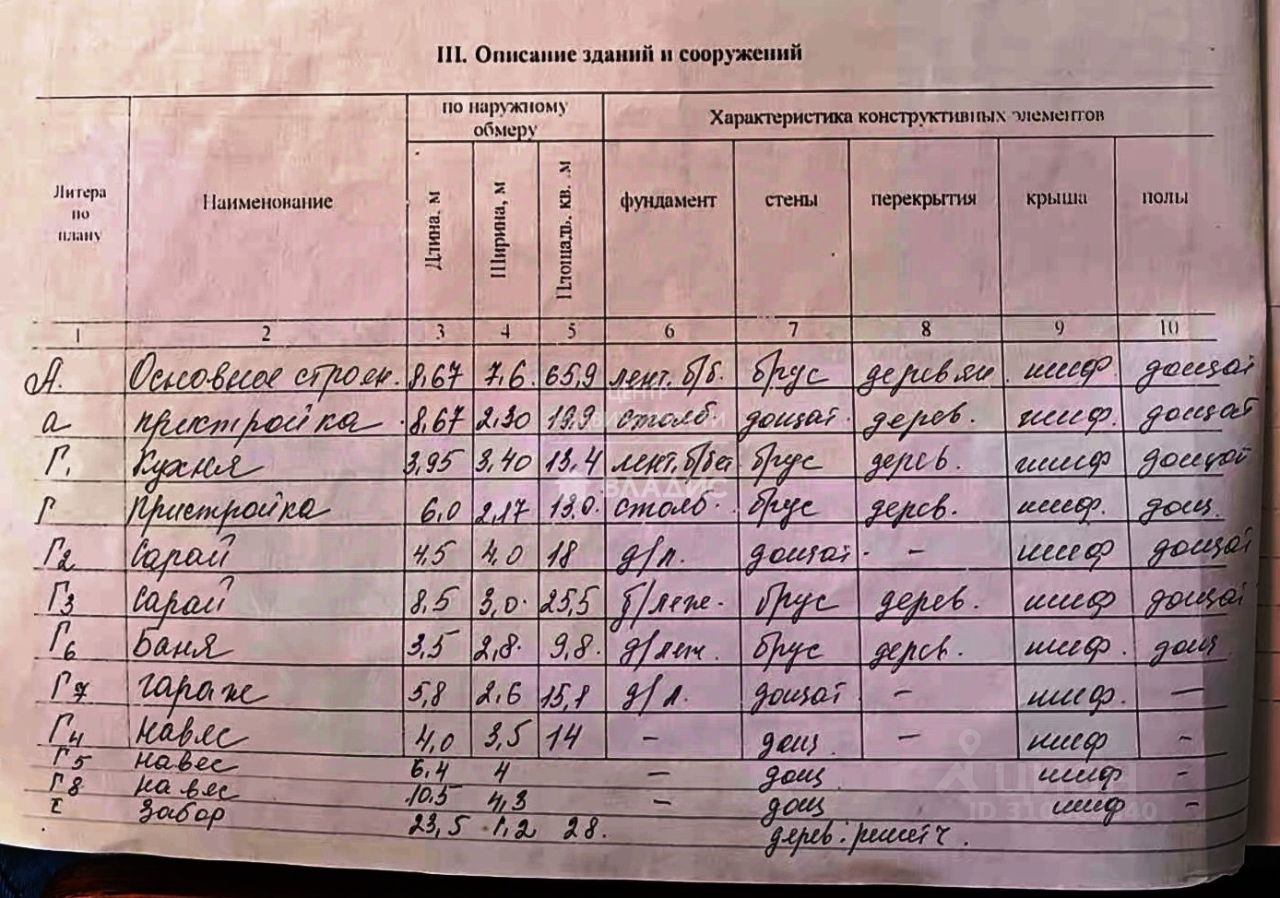 III. Описание зданий и сооружений
Литера по плану
Наименование
по наружному обмеру
Характеристика конструктивных элементов
Длина, м
Ширина, м
Площадь. кв. м
фундамент
стены
перекрытия
крыша
полы
1 2 3 4 5 6 7 8 9 10
А. Основное строен. 8,67 7,6. 65,9 лент. б/б. брус деревян. шиф. дощат
а пристройка 8,67 2.30 19,9 столб дощат. дерев. шиф. дощат
Г1 Кухня 3,95 3,40 13,4 лент. б/бет брус дерев. шиф дощат
Г Пристройка 6,0 2,17 13.0. столб. брус дерев. шиф. дощ.
Г2 Сарай 4,5 4,0 18 д/л. дощат. - шиф дощат
Г3 Сарай 8,5 3,0. 25,5 б/леж. брус дерев. шиф дощат
Г6 Баня 3,5 2,8. 9,8. д/леж. брус дерев. шиф. дощ.
Г7 гараж 5,8 2,6 15,1 д/л. дощат - шиф. —
Г4 навяс 4,0 3,5 14 - дощ. - шиф -
Г5 навес 6,4 4 - дощ шиф -
Г8 навяс 10.5 4,3 - дощ шиф -
забор 23,5 1,2 28. дерев. решетч.
ЦЕНТР
НЕДВИЖИМОСТИ
ВЛАДИС
циан